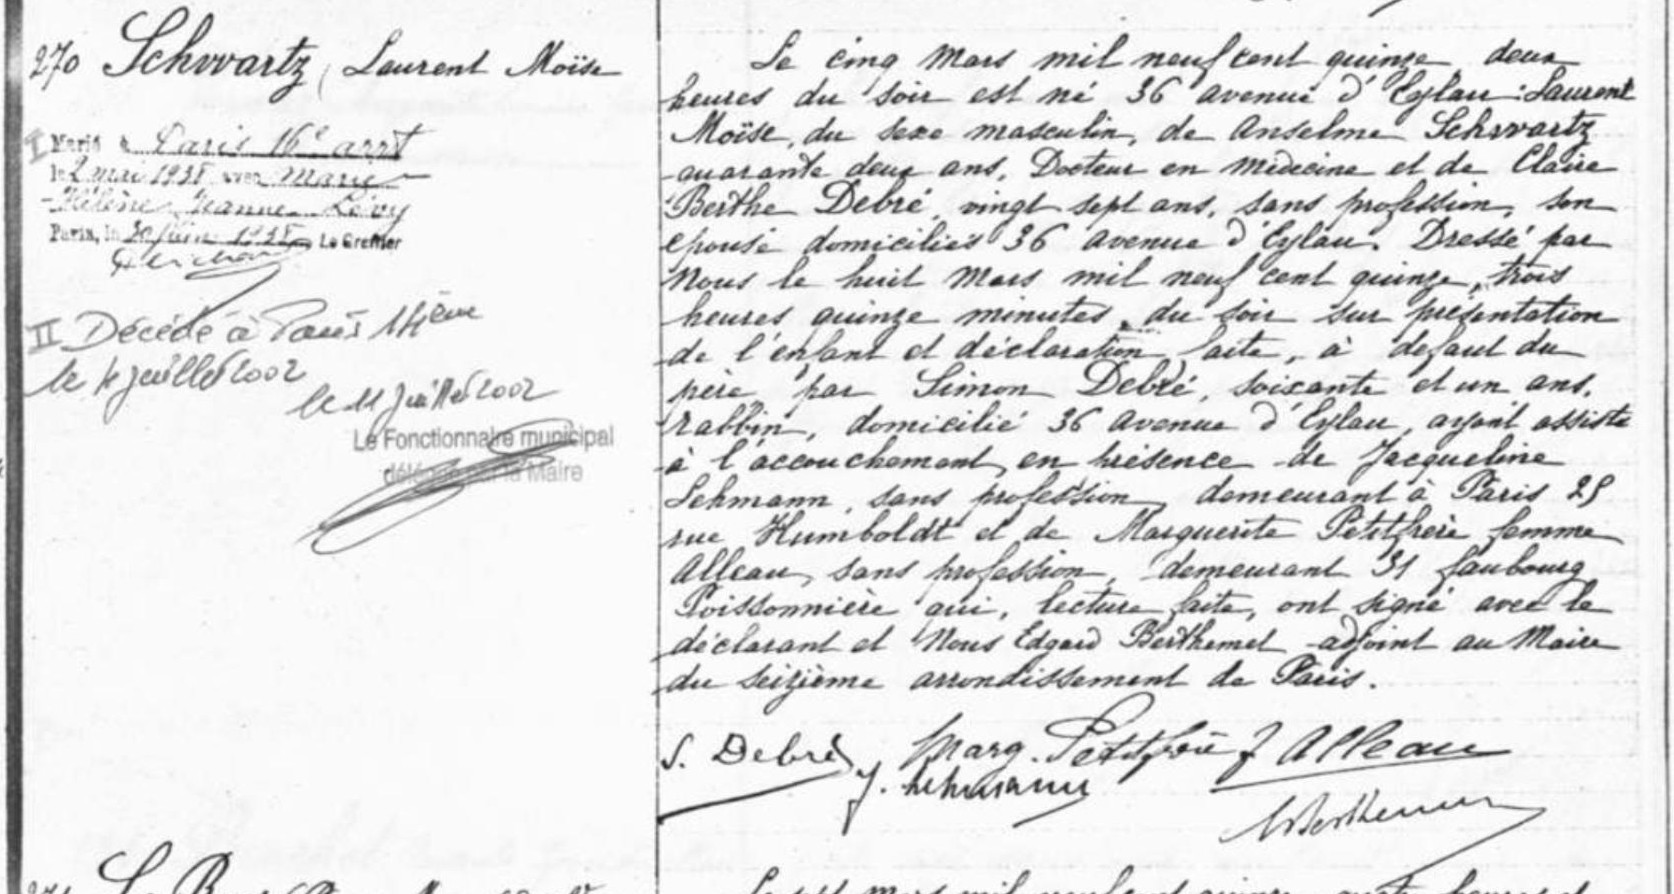 270 Schwartz, Laurent Moïse
I Marié à Paris 16e arrt
le 2 mai 1938 avec Marie
Hélène Jeanne Lévy
Paris, le 30 juin 1938 Le Greffier
II Décédé à Paris
le 4 juillet 2002
le 11 juillet 2002
Le Fonctionnaire municipal
délégué par la Maire
Le cinq Mars mil neuf cent quinze deux
heures du soir est né 36 avenue d'Eylau : Laurent
Moïse, du sexe masculin, de Anselme Schwartz
quarante deux ans, Docteur en médecine et de Claire
Berthe Debré, vingt sept ans, sans profession, son
épouse domiciliés 36 avenue d'Eylau. Dressé par
Nous le huit Mars mil neuf cent quinze, trois
heures quinze minutes du soir sur présentation
de l'enfant et déclaration faite, à défaut du
père, par Simon Debré, soixante et un ans,
rabbin, domicilié 36 avenue d'Eylau, ayant assisté
à l'accouchement, en présence de Jacqueline
Lehmann, sans profession, demeurant à Paris 25
rue Humboldt et de Marguerite Petitfrère femme
Alleau, sans profession, demeurant 31 faubourg
Poissonnière qui, lecture faite, ont signé avec le
déclarant et Nous Edgard Berthemet adjoint au Maire
du seizième arrondissement de Paris.
S. Debré Marg. Petitfrère f Alleau
J. Lehmann
Berthemet